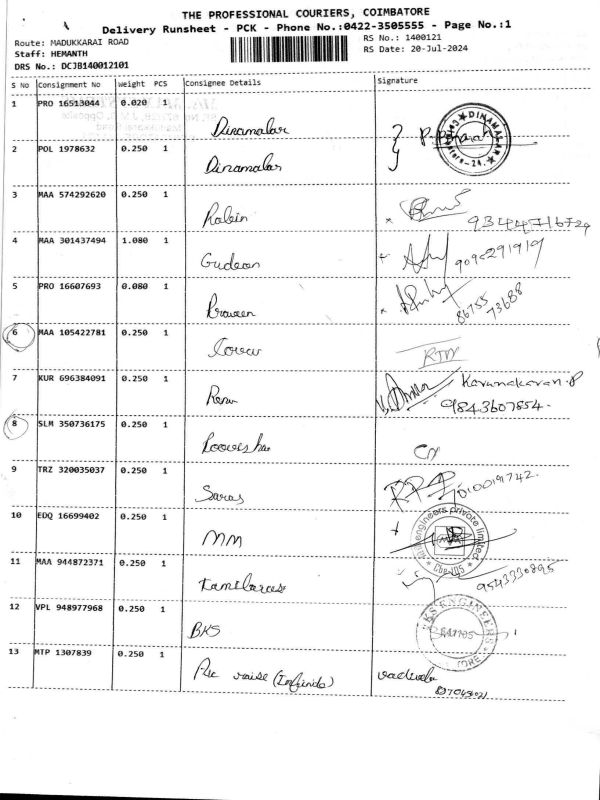 THE PROFESSIONAL COURIERS, COIMBATORE
Delivery Runsheet - PCK - Phone No.:0422-3505555 - Page No.:1
Route: MADUKKARAI ROAD
RS No.: 1400121
Staff: HEMANTH
RS Date: 20-Jul-2024
DRS No.: DCJB140012101
S No Consignment No Weight PCS Consignee Details Signature
1 PRO 16513044 0.020 1
Dinamalar
2 POL 1978632 0.250 1
Dinamalar
3 MAA 574292620 0.250 1
Robin
4 MAA 301437494 1.080 1
Gudeon 9095291919
5 PRO 16607693 0.080 1
Praveen 86755 73688
6 MAA 105422781 0.250 1
7 KUR 696384091 0.250 1
Karunakaran.P
Renu 9843607854.
8 SLM 350736175 0.250 1
9 TRZ 320035037 0.250 1
Saras
10 EDQ 16699402 0.250 1
MM
11 MAA 944872371 0.250 1
9543330895
12 VPL 948977968 0.250 1
BKS
13 MTP 1307839 0.250 1